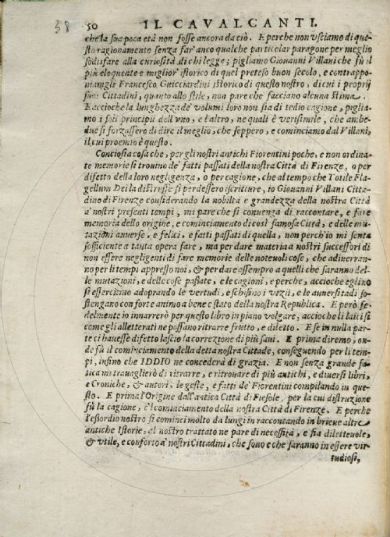 58
50 IL CAVALCANTI.
che la sua poca età non fosse ancora da ciò. E perche non usciamo di que-
sto ragionamento senza far' anco qualche particolar paragone per meglio
sodisfare alla curiosità di chi legge; pigliamo Giouanni Villani che fù il
più eloquente e miglior' istorico di quel preteso buon secolo, e contrappo-
niamgli Francesco Guicciardini istorico di questo nostro, di cui i proprij
suoi Cittadini, quanto allo stile, non pare che facciano alcuna stima.
E accioche la lunghezza de' volumi loro non sia di tedio cagione, pigliamo
i soli principij dell' vno, e l'altro, ne quali è verisimile, che ambe-
due si forzassero di dire il meglio, che seppero, e cominciamo dal Villani,
il cui proemio è questo.
Conciosia cosa che, per gli nostri antichi Fiorentini poche, e non ordina-
te memorie si trouino de' fatti passati della nostra Città di Firenze, o per
difetto della loro negligenza, o per cagione, che al tempo che Totile Fla-
gellum Dei la distrusse si perdessero iscritture, io Giouanni Villani Cittta-
dino di Firenze considerando la nobiltà e grandezza della nostra Città
a' nostri presenti tempi, mi pare che si conuenga di raccontare, e fare
memoria dello origine, e cominciamento di così famosa Città, e delle mu-
tazioni auuerse, e felici, e fatti passati di quella, non perch'io mi senta
sofficiente a tanta opera fare, ma per dare materia a nostri successori di
non essere negligenti di fare memorie delle noteuoli cose, che aduerran-
no per li tempi appresso noi, & per dare essempro a quelli che saranno del-
le mutazioni, e delle cose passate, e le cagioni, e perche, accioche eglino
si essercitino adoprando le vertudi, e schifino i vizij, e le auuersitadi so-
stengano con forte animo a bene e stato della nostra Republica. E però fe-
delmente io innarrerò per questo libro in piano volgare, accioche li laici sì
come gli alletterati ne possano ritrarre frutto, e diletto. E se in nulla par-
te ci hauesse difetto lascio la correzione di più sani. E prima diremo, on-
de fù il cominciamento della detta nostra Cittade, conseguendo per li tem-
pi, insino che IDDIO ne concederà di grazia. E non senza grande fa-
tica mi trauaglierò di ritrarre, e ritrouare di più antichi, e diuersi libri,
e Croniche, & autori, le geste, e fatti de' Fiorentini compilando in que-
sto. E prima l'Origine dell'antica Città di Fiesole, per la cui distruzione
fù la cagione, e'l cominciamento della nostra Città di Firenze. E perche
l'esordio nostro si cominci molto da lungi in raccontando in brieue altre
antiche Istorie, al nostro trattato ne pare di necessità, e sia diletteuole,
& vtile, e conforto a' nostri Cittadini, che sono e che saranno in essere vir-
tudiosi,